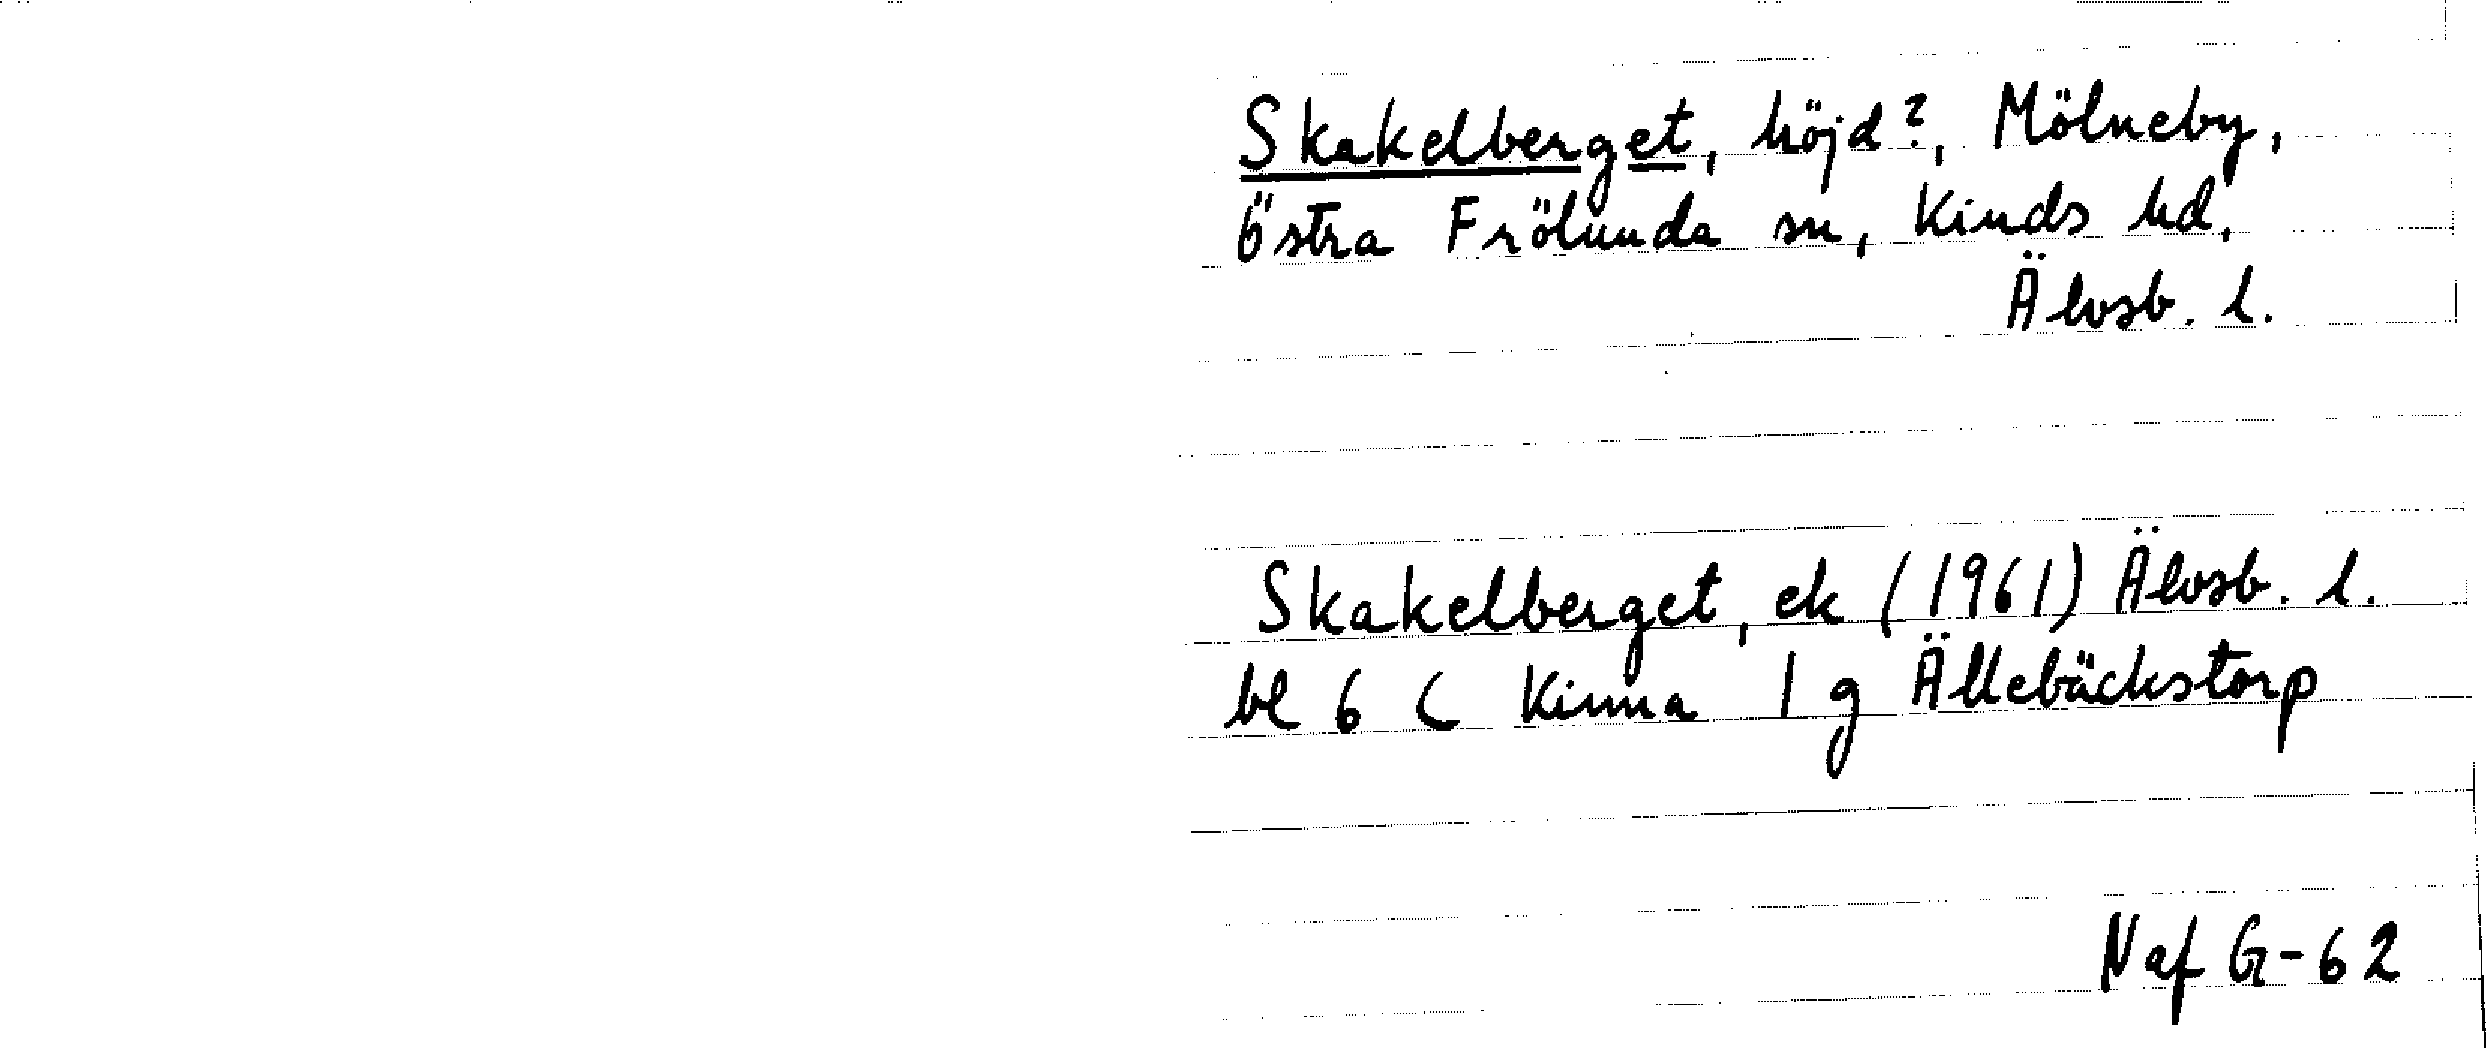 Skakelberget, höjd?, Mölneby,
Östra Frölunda sn, Kinds hd,
Älvsb. l.
Skakelberget, ek (1961) Älvsb. l.
bl 6 C Kinna 1 g Ällebäckstorp
Naf G-62